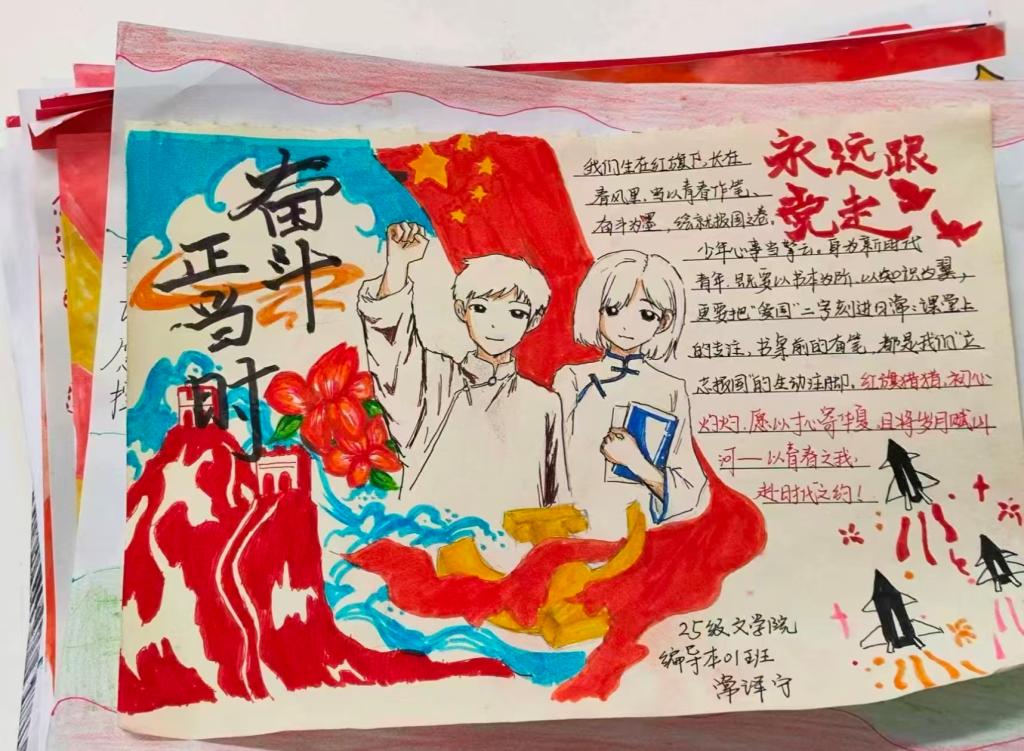 奋斗
正当时
永远跟
党走
我们生在红旗下,长在
春风里,当以青春作笔、
奋斗为墨,绘就报国之卷。
少年心事当拏云。身为新时代
青年,既要以书本为所,以知识为翼,
更要把“爱国”二字刻进日常:课堂上
的专注,书案前的奋笔,都是我们“立
志报国”的生动注脚。红旗猎猎,初心
灼灼,愿以寸心寄华夏,且将岁月赋山
河——以青春之我,
赴时代之约!
25级文学院
编导本01班
常泽宁